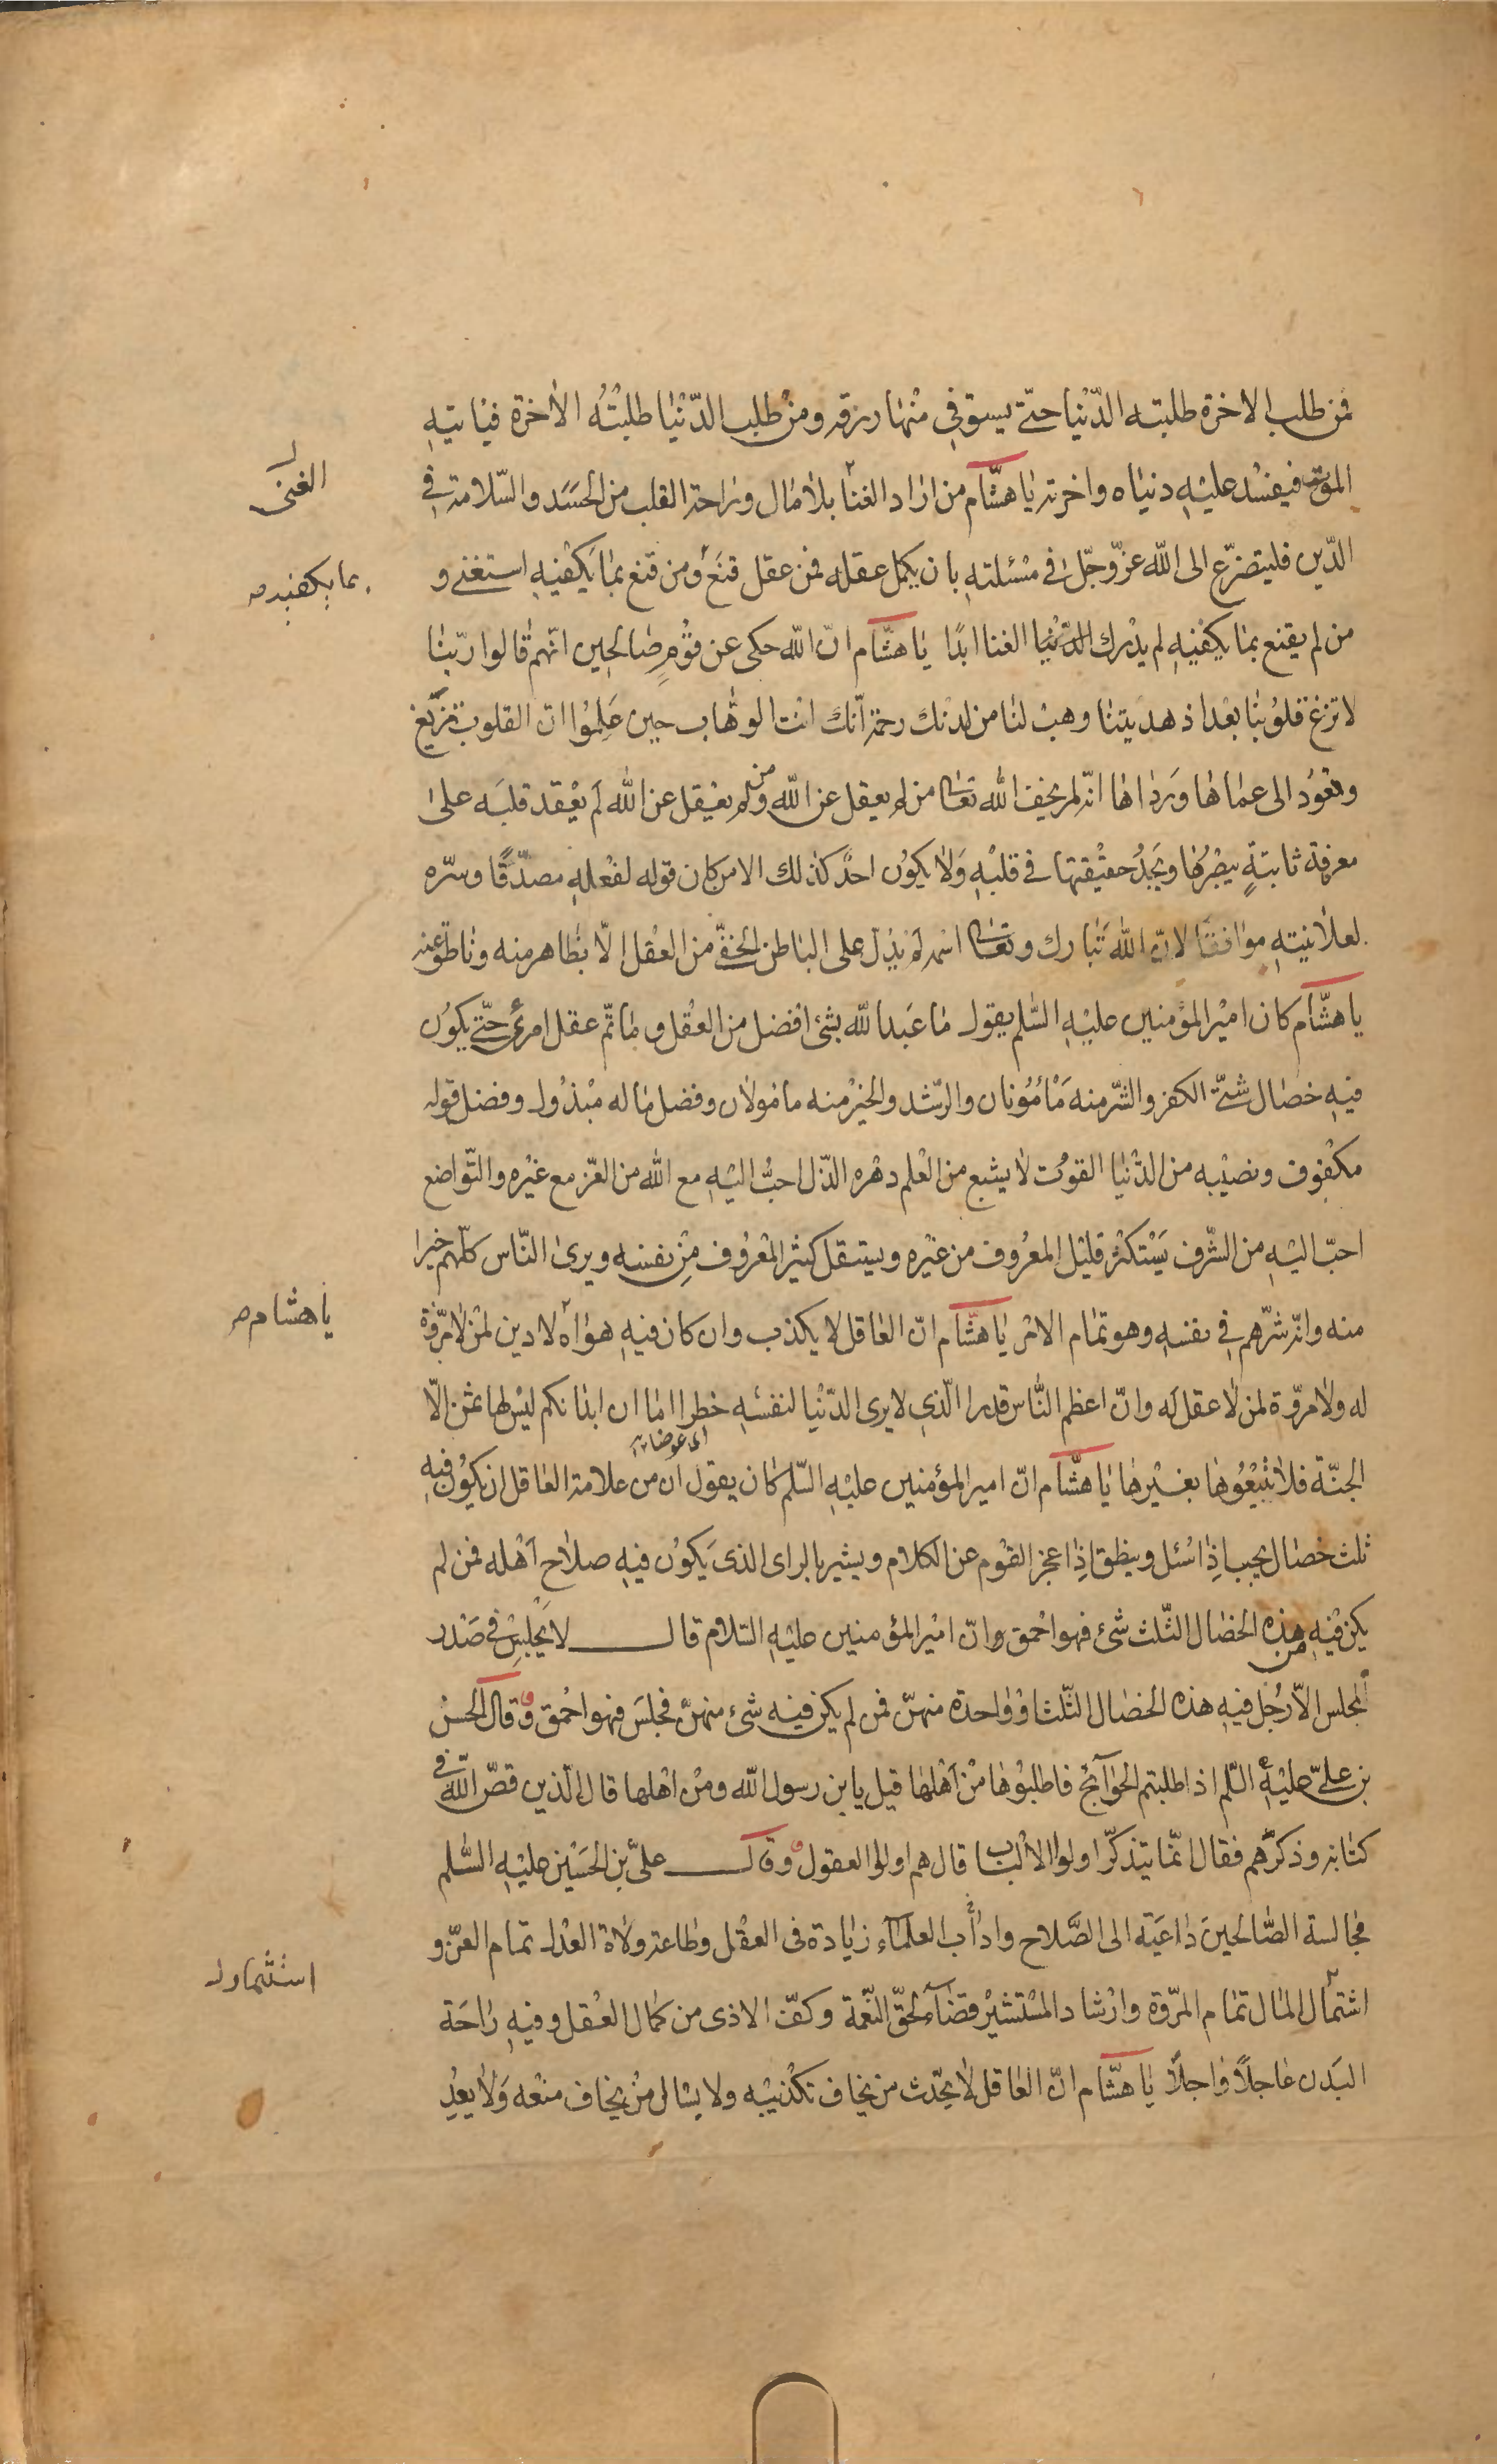 فمن طلب الاخرة طلبته الدّنيا حتّى يستوفى منها رزقه ومن طلب الدّنيا طلبته الاخرة فياتيهِ
الموت فيفسد عليهِ دنياه واخرته يا هشام من اراد الغنا بلا مال وراحة القلب من الحسَد والسّلامة فى
الدّين فليتضرّع الى الله عزّ وجلّ فى مسئلته بان يكمل عقله فمن عقل قنعَ ومن قنع بما يكفيهِ استغنى و
من لم يقنع بما يكفيهِ لم يدرك الدّنيا الغنا ابدًا يا هشام انّ الله حكى عن قومٍ صالحين انّهم قالوا ربّنا
لا تزغ قلوبنا بعد اذ هديتنا وهب لنا من لدنك رحمة انّك انت الوهّاب حين عَلِمُوا انّ القلوب تزيغ
وتعُود الى عماها وَرداها انّه لم يخف الله تعالى من لم يعقل عن الله ومن لم يعقل عن الله لم يعْقد قلبَه على
معرفة ثابتةٍ يبصرُها ويجدُ حقيقتها فى قلبهِ وَلا يكوُن احدٌ كذلك الا من كان قوله لفعلهِ مصدّقًا وسرّه
لعلانيتهِ موافقًا لانّ الله تَبارك وتعالى اسمه لم يدلّ على الباطن الخفىّ من العقل الّا بظاهر منه وناطق عنه
يا هشّام كان امير المؤمنين عليهِ السّلم يقول ما عَبد الله بشئ افضل من العقل وما تمّ عقل امرئ حتّى يكوُن
فيهِ خصال شتّى الكفر والشّر منه مَأمُونان والرّشد والخيرُ منه مامولان وفضل ماله مبْذول وفضل قوله
مكفوف ونصيبه من الدّنيا القوت لا يشبع من العْلم دهره الذّل احبُّ اليهِ مع الله من العزّ مع غيْره والتّواضع
احبّ اليهِ من الشّرف يَسْتكثر قليْل المعرُوف من غيْره ويستقل كثيْر المعْروف مِن نفسه ويرى النّاس كلّهم خيرا
منه وانّه شرّهم فى نفسهِ وهو تمام الامر يا هشّام انّ العاقل لا يكذب وان كان فيهِ هواه لا دين لمن لا مروّة
له ولا مروّة لمن لا عقل له وانّ اعظم النّاس قدرا الّذى لا يرى الدّنيا لنفسهِ خطرا اما ان ابدانكم ليس لها ثمن الّا
اى عوضا
الجنّة فلا تبيعُوها بغيْرها يا هشّام انّ امير المؤمنين عليهِ السّلم كان يقول ان من علامة العاقل ان يكوُن فيهِ
ثلث خصال يجيب اذا سُئل وينطق اذا عجز القوم عن الكلام ويشير بالراى الذى يَكوُن فيهِ صلاح اَهْله فمن لم
يكن فيْهِ من هذه الخصال الثّلث شئ فهو احْمق وانّ امير المؤمنين عليهِ السّلام قال لا يَجْلِس فى صَدْر
المجلس الّا رجُل فيهِ هذه الخصال الثّلث او واحدة منهنّ فمن لم يكن فيه شئ منهنّ فجلسَ فهو احْمق وقال الحسن
بن علىّ عليْهِ السّلم اذا طلبتم الحوائج فاطلبُوها منْ اهْلها قيل يا بن رسول الله ومن اهْلها قال الّذين قصّ الله فى
كتابه وذكرهم فقال انّما يتذكّر اولوا الالباب قال هم اولوا العقول وقال علىّ بن الحسَين عليْهِ السّلم
مجالسة الصّالحينَ داعيَة الى الصَّلاح واداب العلماء زيادة فى العقل وطاعة ولاة العدْل تمام العزّ و
اشتمال المال تمام المروّة وارشاد المسْتشير قضاء لحقّ النّعمة وكفّ الاذى من كمال العقل وفيهِ راحَة
البَدن عاجلاً واجلاً يا هشّام انّ العاقل لا يحدّث من يخاف تكذيبه ولا يسال من يخاف منعه وَلا يعِدُ
الغنى
بما يكفيه
يا هشام
استثمار